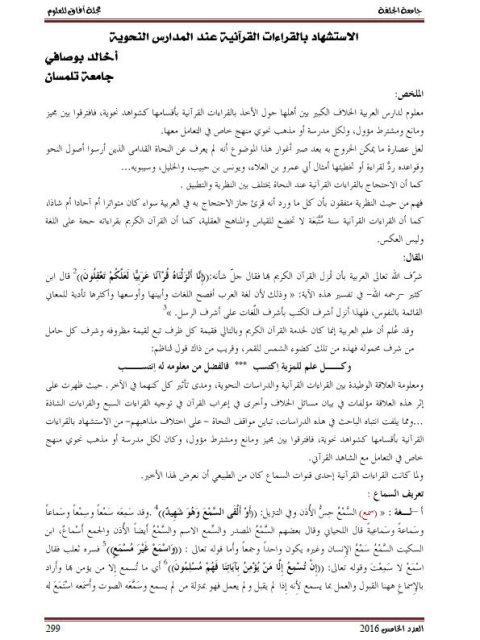 جامعة الجلفة مجلة آفاق للعلوم
الاستشهاد بالقراءات القرآنية عند المدارس النحوية
أخالد بوصافي
جامعة تلمسان
الملخص:
معلوم لدارس العربية الخلاف الكبير بين أهلها حول الأخذ بالقراءات القرآنية بأقسامها كشواهد نحوية، فافترقوا بين مجيز
ومانع ومشترط مؤول، ولكل مدرسة أو مذهب نحوي منهج خاص في التعامل معها.
لعل عصارة ما يمكن الخروج به بعد صبر أغوار هذا الموضوع أنه لم يعرف عن النحاة القدامى الذين أرسوا أصول النحو
وقواعده ردٌّ لقراءة أو تخطيئها أمثال أبي عمرو بن العلاء، ويونس بن حبيب، والخليل، وسيبويه...
كما أن الاحتجاج بالقراءات القرآنية عند النحاة يختلف بين النظرية والتطبيق .
فهم من حيث النظرية متفقون بأن كل ما ورد أنه قرئ جاز الاحتجاج به في العربية سواء كان متواترا أم آحادا أم شاذا،
كما أن القراءات القرآنية سنة مُتَّبَعَة لا تخضع للقياس والمناهج العقلية، كما أن القرآن الكريم بقراءاته حجة على اللغة
وليس العكس.
المقال:
شرّف الله تعالى العربية بأن أنزل القرآن الكريم بها فقال جلّ شأنه:((إِنَّا أَنْزَلْنَاهُ قُرْآنًا عَرَبِيًّا لَعَلَّكُمْ تَعْقِلُونَ))2 قال ابن
كثير -رحمه الله- في تفسير هذه الآية: « وذلك لأن لغة العرب أفصح اللغات وأبينها وأوسعها وأكثرها تأدية للمعاني
القائمة بالنفوس، فلهذا أنزل أشرف الكتب بأشرف اللُّغات على أشرف الرسل. »3
وقد عُلم أن علم العربية إنما كان لخدمة القرآن الكريم وبالتالي فقيمة كل ظرف تبع لقيمة مظروفه وشرف كل حامل
من شرف محموله فهذه من تلك كضوء الشمس للقمر، وقريب من ذاك قول الناظم:
وكـــل علم للمزية إكتسب *** فالفضل من معلومه له إنتســـب
ومعلومة العلاقة الوطيدة بين القراءات القرآنية والدراسات النحوية، ومدى تأثير كل منهما في الآخر. حيث ظهرت على
إثر هذه العلاقة مؤلفات في بيان مسائل الخلاف وأخرى في إعراب القرآن في توجيه القراءات السبع والقراءات الشاذة
...ومما يلفت انتباه الباحث في هذه الدراسات، تباين مواقف النحاة – على اختلاف مذاهبهم– من الاستشهاد بالقراءات
القرآنية بأقسامها كشواهد نحوية، فافترقوا بين مجيز ومانع ومشترط مؤول، وكان لكل مدرسة أو مذهب نحوي منهج
خاص في التعامل مع الشاهد القرآني.
ولما كانت القراءات القرآنية إحدى قنوات السماع كان من الطبيعي أن نعرض لهذا الأخير.
تعريف السماع :
أ-لـــغة : « (سمع) السَّمْعُ حسُّ الأُذن وفي التنزيل: ((أَوْ أَلْقَى السَّمْعَ وَهُوَ شَهِيدٌ))4 .وقد سَمِعَه سَمْعاً وسِمْعاً وسَماعاً
وسَماعة وسَماعِيةً قال اللحياني وقال بعضهم السَّمْعُ المصدر والسِّمع الاسم والسَّمْعُ أيضاً الأُذن والجمع أَسْماعٌ، ابن
السكيت السَّمْعُ سَمْعُ الإنسان وغيره يكون واحداً وجمعاً وأما قوله تعالى : ((وَاسْمَعْ غَيْرَ مُسْمَعٍ))5 فسره ثعلب فقال
اسْمَعْ لا سَمِعْتَ وقوله تعالى: ((إِنْ تُسْمِعُ إِلَّا مَنْ يُؤْمِنُ بِآيَاتِنَا فَهُمْ مُسْلِمُونَ))6 أي ما تُسمع إلا من يؤمن بها وأراد
بالإسماع ههنا القبول والعمل بما يسمع لأنه إذا لم يقبل ولم يعمل فهو بمنزلة من لم يسمع وسَمَّعَه الصوت وأَسْمَعَه اسْتَمَعَ له
العدد الخامس 2016 299